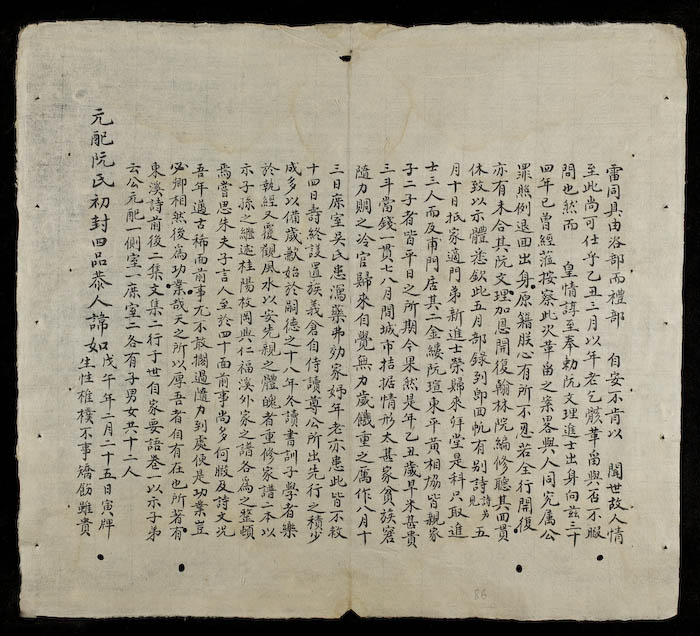 雷同具由洛部而禮部 自安不肯以 閱世故人情
至此尚可仕乎乙丑三月以年老乞骸革畨與否不暇
問也然而 皇情諄至奉勅阮文理進士出身向玆三十
四年已曾經蒞按察此次革畨之案畧與人同究属公
罪照例退回出身原籍朕心有所不忍若全行開復
亦有未合其阮文理加恩開復翰林院編修聽其回貫
休致以示體悉欽此五月部錄到郎回帆有别詩詩另見五
月十日抵家適門弟新進士榮歸來拜堂是科只取進
士三人而及甫門居其二金縷阮瑄東平黄相協皆親家
子二子者皆平日之所期今果然是年乙丑歲旱米甚貴
三斗當錢一貫七八月間城市拮据情形太甚家貧族窘
隨力賙之冷官歸來自覺無力歲饑重之厲作八月十
三日庶室吳氏患瀉藥弗効家妤年老亦患此皆不救
十四日壽終設置族義倉自侍讀尊公所出先行之積少
成多以備歲歉始於嗣德之十八年冬讀書訓子學者樂
於執經又覆觀風水以安先親之體魄者重修家譜二本以
示子孫之繼述桂陽枚岡與仁福溪外家之譜各為之整頓
焉嘗思朱夫子言人至於四十面前事尚多何暇及詩文况
吾年邁古稀而前事尤不敢擱過隨力到處便是功業豈
必卿相然後為功業哉天之所以厚吾者自有在也所著有
東溪詩前後二集文集二行于世自家要語卷一以示子弟
云公元配一側室一庶室二各有子男女共十二人
元配阮氏初封四品恭人諱如戊午年二月二十五日寅牌
生性椎樸不事矯飭雖貴
86